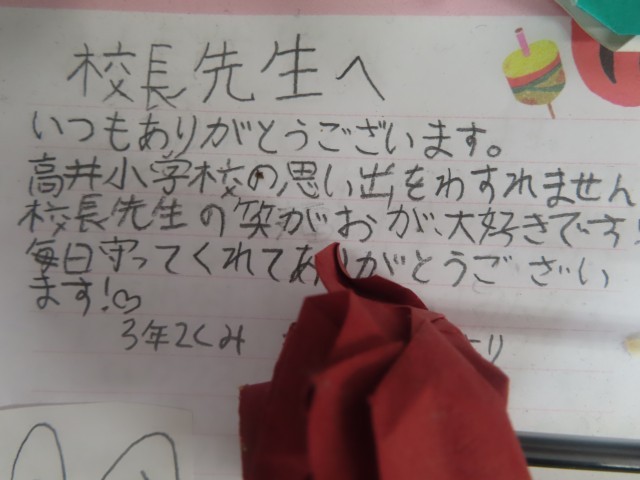 校長先生へ
いつもありがとうございます。
高井小学校の思い出をわすれません
校長先生の笑がおが大好きです!
毎日守ってくれてありがとうござい
ます!♡
3年2くみ